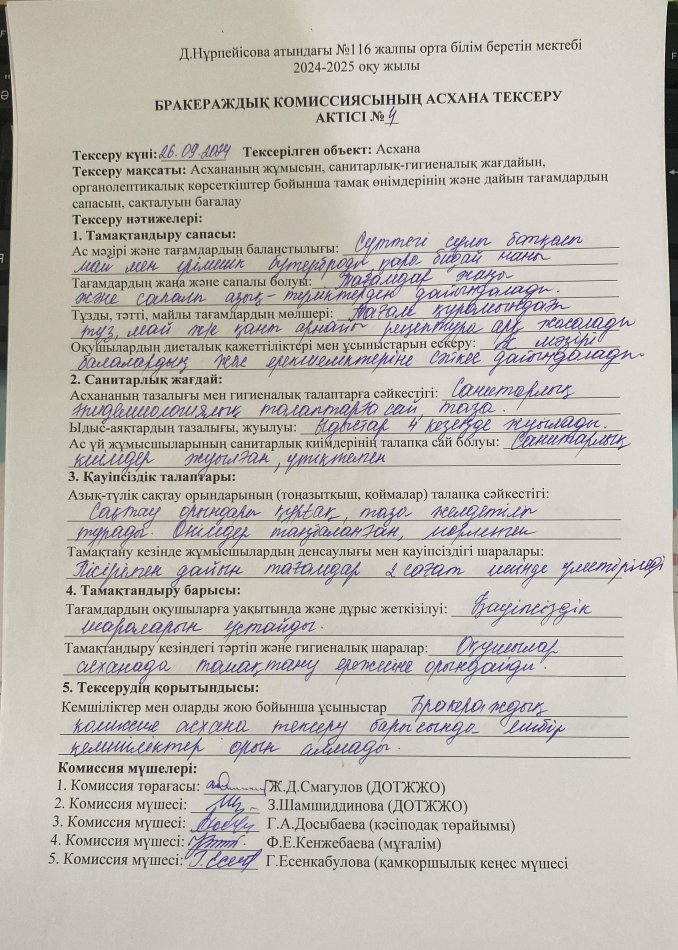 Д.Нұрпейісова атындағы №116 жалпы орта білім беретін мектебі
2024-2025 оқу жылы
БРАКЕРАЖДЫҚ КОМИССИЯСЫНЫҢ АСХАНА ТЕКСЕРУ
АКТІСІ № 4
Тексеру күні: 26.09.2024 Тексерілген объект: Асхана
Тексеру мақсаты: Асхананың жұмысын, санитарлық-гигиеналық жағдайын,
органолептикалық көрсеткіштер бойынша тамақ өнімдерінің және дайын тағамдардың
сапасын, сақталуын бағалау
Тексеру нәтижелері:
1. Тамақтандыру сапасы:
Ас мәзірі және тағамдардың баланстылығы: Сүттегі сұлы ботқасы
май мен ірімшік бутерброды қара бидай наны
Тағамдардың жаңа және сапалы болуы: Тағамдар жаңа
және сапалы азық-түліктерден дайындалады.
Тұзды, тәтті, майлы тағамдардың мөлшері: Тағам құрамындағы
тұз, май және қант арнайы рецептура арқ жасалады
Оқушылардың диеталық қажеттіліктері мен ұсыныстарын ескеру: Ас мәзірі
балалардың жас ерекшеліктеріне сәйкес дайындалады.
2. Санитарлық жағдай:
Асхананың тазалығы мен гигиеналық талаптарға сәйкестігі: Санитарлық
эпидемиологиялық талаптарға сай, таза.
Ыдыс-аяқтардың тазалығы, жуылуы: Ыдыстар 4 кезеңде жуылады.
Ас үй жұмысшыларының санитарлық киімдерінің талапқа сай болуы: Санитарлық
киімдер жуылған, үтіктелген
3. Қауіпсіздік талаптары:
Азық-түлік сақтау орындарының (тоңазытқыш, қоймалар) талапқа сәйкестігі:
Сақтау орындары құрғақ, таза желдетіліп
тұрады. Өнімдер таңбаланған, мөрленген
Тамақтану кезінде жұмысшылардың денсаулығы мен қауіпсіздігі шаралары:
Пісірілген дайын тағамдар 2 сағат ішінде үлестіріледі
4. Тамақтандыру барысы:
Тағамдардың оқушыларға уақытында және дұрыс жеткізілуі: Қауіпсіздік
шараларын ұстайды.
Тамақтандыру кезіндегі тәртіп және гигиеналық шаралар: Оқушылар
асханада тамақтану ережесіне орындайды.
5. Тексерудің қорытындысы:
Кемшіліктер мен оларды жою бойынша ұсыныстар Бракераждық
комиссия асхана тексеру барысында ешбір
кемшіліктер орын алмады.
Комиссия мүшелері:
1. Комиссия төрағасы: Ж.Д.Смагулов (ДОТЖЖО)
2. Комиссия мүшесі: З.Шамшиддинова (ДОТЖЖО)
3. Комиссия мүшесі: Г.А.Досыбаева (кәсіподақ төрайымы)
4. Комиссия мүшесі: Ф.Е.Кенжебаева (мұғалім)
5. Комиссия мүшесі: Г.Есенкабулова (қамқоршылық кеңес мүшесі